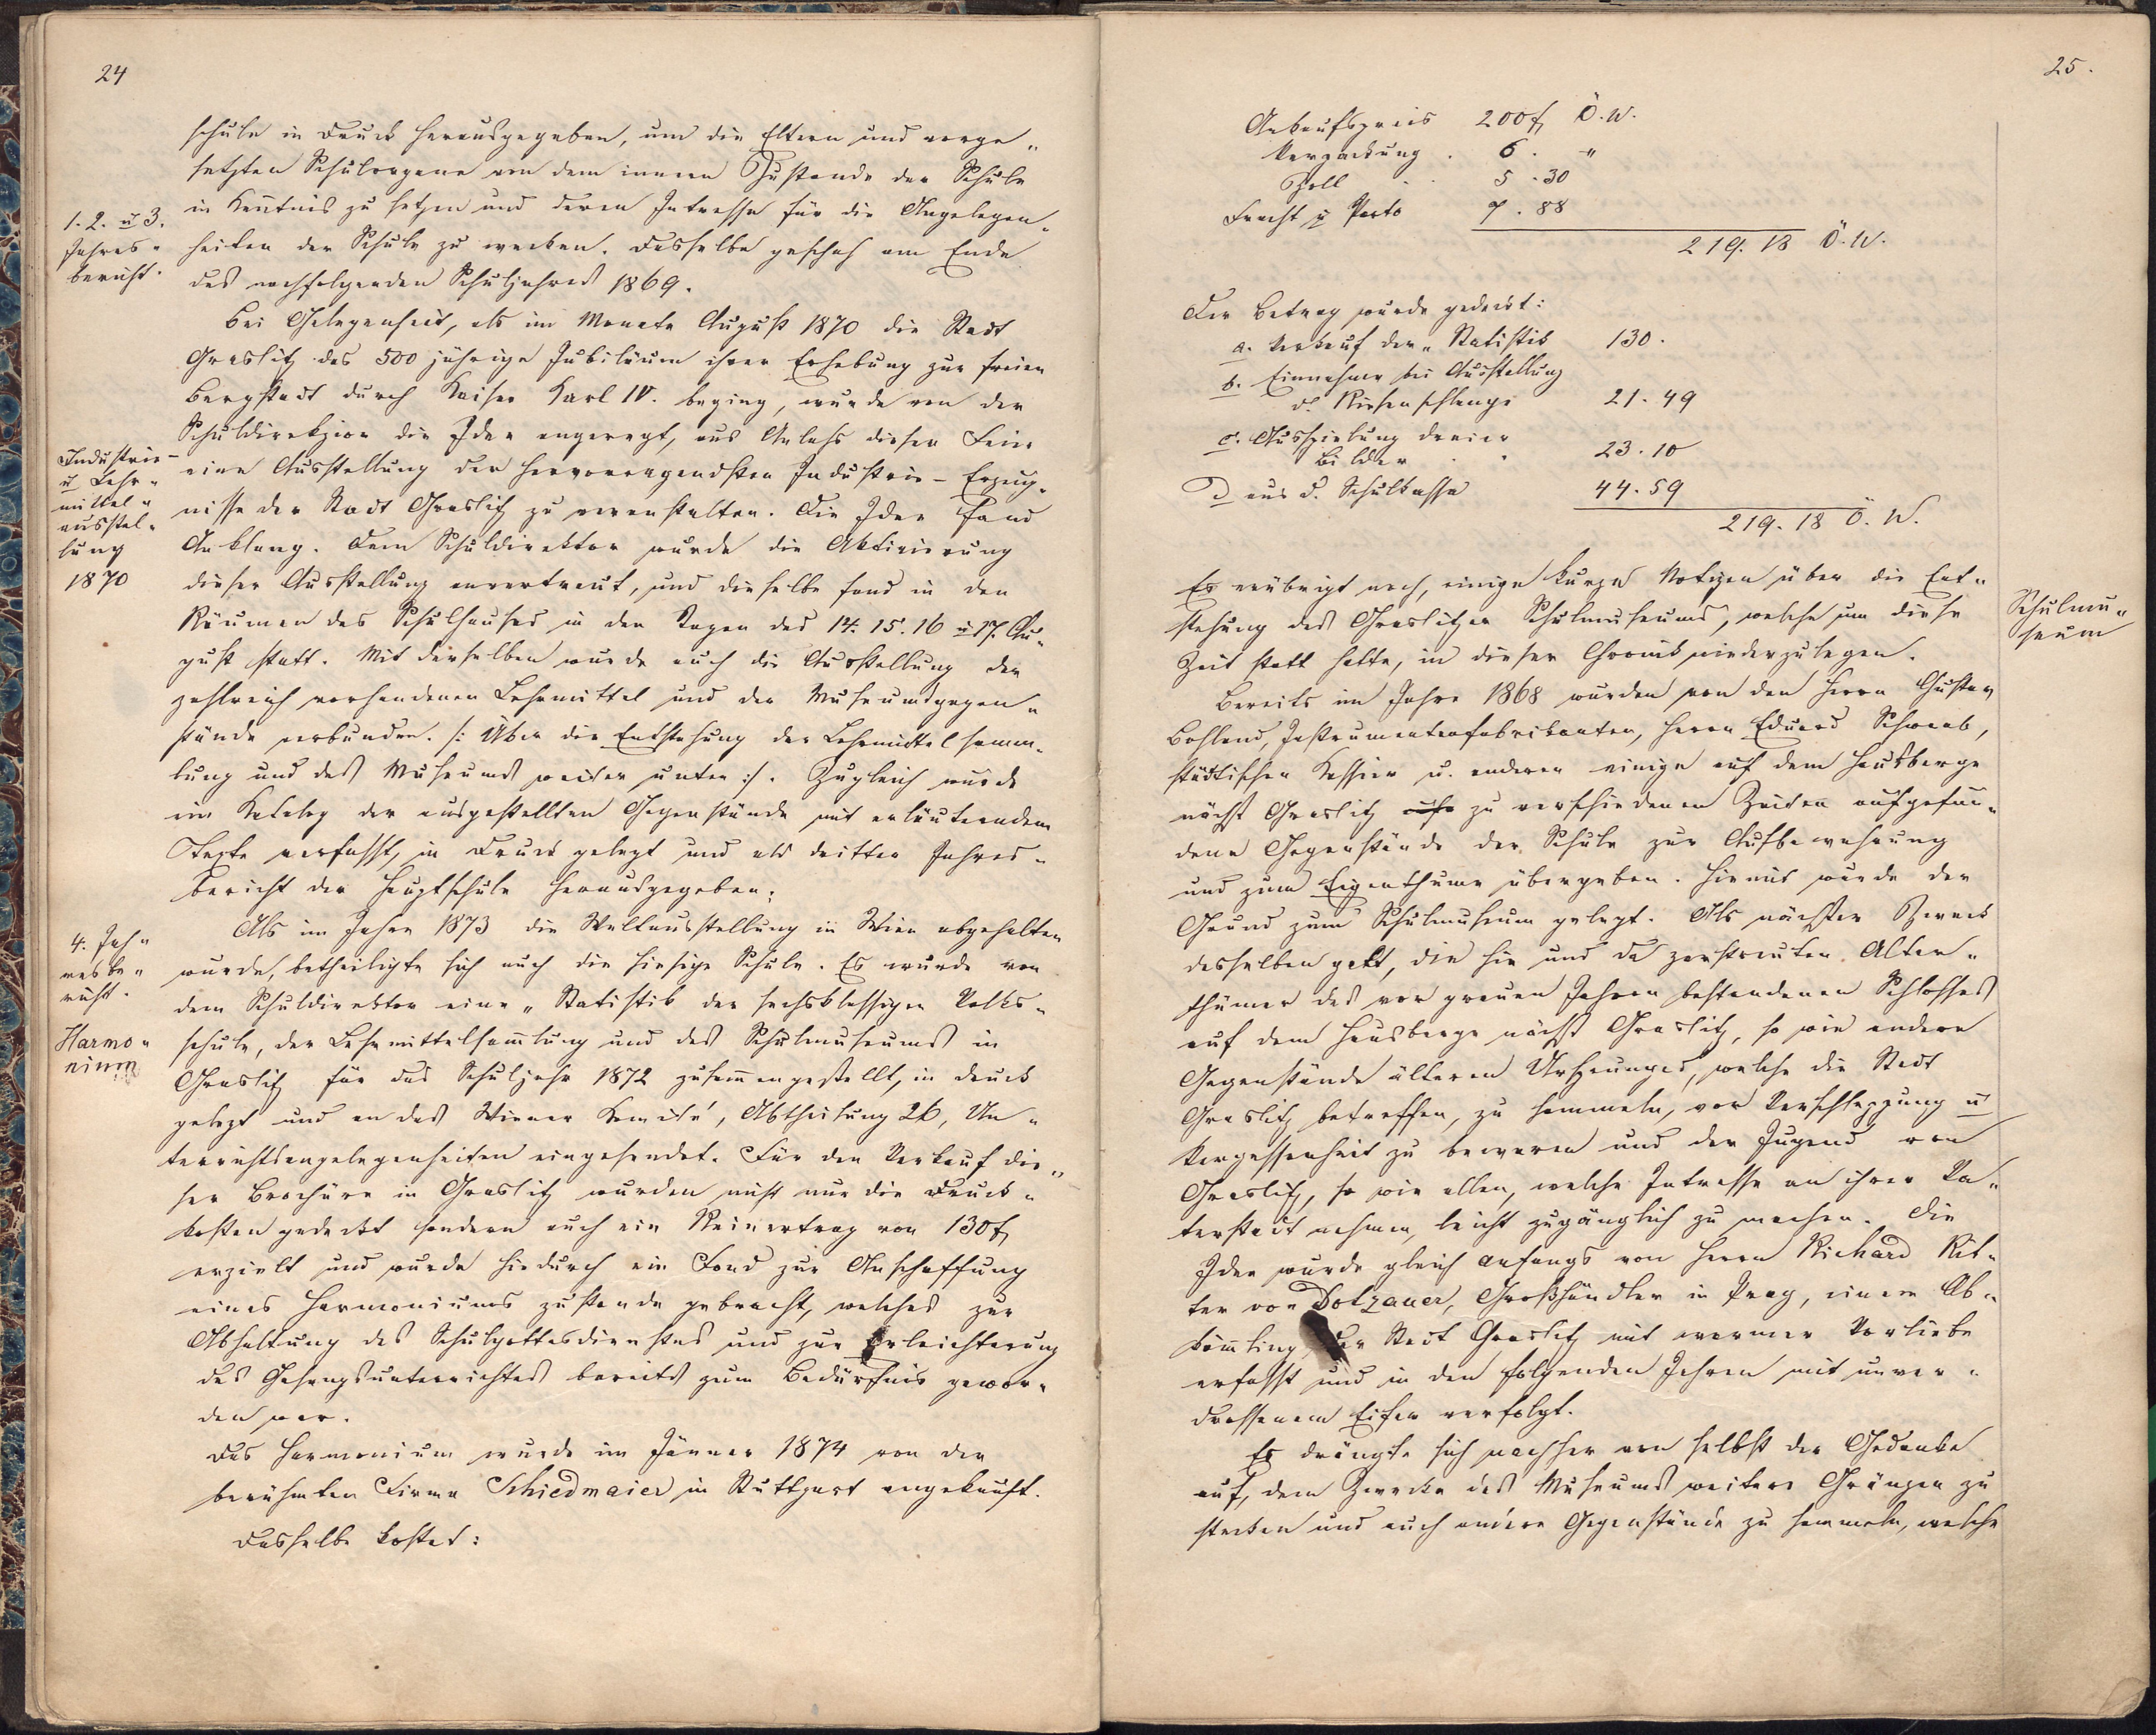 24
schule in Druck herausgegeben, um die Eltern und vorge„
setzten Schulorgane von dem innern Zustande der Schule
1. 2. u 3.
in Kentnis zu setzen und deren Intresse für die Angelegen„
Jahres„
heiten der Schule zu wecken. Dasselbe geschah am Ende
bericht.
des nachfolgenden Schuljahres 1869.
Bei Gelegenheit, als im Monate August 1870 die Stadt
Graslitz das 500 jährige Jubiläum ihrer Erhebung zur freien
Bergstadt durch Kaiser Karl IV. beging, wurde von der
Schuldirekzion die Idee angeregt, aus Anlass dieser Feier
Industrie-
eine Ausstellung der hervorragendsten Industrie-Erzeug„
u Lehr„
mittel„
nisse der Stadt Graslitz zu veranstalten. Die Idee fand
ausstel„
lung
Anklang. Dem Schuldirektor wurde die Aktivierung
1870
dieser Ausstellung anvertraut, und dieselbe fand in den
Räumen des Schulhauses in den Tagen des 14. 15. 16 u 17. Au„
gust statt. Mit derselben wurde auch die Ausstellung der
zahlreich vorhandenen Lehrmittel und der Museumsgegen„
stände verbunden. /: Über die Entstehung der Lehrmittelsamm„
lung und des Museums weiter unten :/. Zugleich wurde
ein Katalog der ausgestellten Gegenstände mit erläuterndem
Texte verfasst, in Druck gelegt und als dritter Jahres„
bericht der Hauptschule herausgegeben.
Als im Jahre 1873 die Weltausstellung in Wien abgehalten
4. Jah„
resbe„
wurde, betheiligte sich auch die hiesige Schule. Es wurde von
richt.
dem Schuldirektor eine „Statistik der sechsklassigen Volks„
Harmo„
schule, der Lehrmittelsamlung und des Schulmuseums in
nium
Graslitz für das Schuljahr 1872 zusammengestellt, in Druck
gelegt und an das Wiener Komité, Abtheilung 26, Un„
terrichtsangelegenheiten eingesendet. Für den Verkauf die„
ser Brochüre in Graslitz wurden nicht nur die Druck„
kosten gedeckt sondern auch ein Reinertrag von 130 f
erzielt und wurde hiedurch ein Fond zur Anschaffung
eines Harmoniums zustande gebracht, welches zur
Abhaltung des Schulgottesdienstes und zur Erleichterung
des Gesangsunterrichtes bereits zum Bedürfnis gewor„
den war.
Das Harmonium wurde im Jänner 1874 von der
berühmten Firma Schiedmaier in Stuttgart angekauft.
Dasselbe kostet:
25.
Ankaufspreis 200 f Ö. W.
Verpackung . 6 . „
Zoll . . 5 . 30
Fracht u Porto 7 . 88
219. 18 Ö. W.
Der Betrag wurde gedeckt:
a. Verkauf der „Statistik 130.
b. Einnahme bei Ausstellung
d. Riesenschlange 21. 49
c. Ausspielung dreier
Bilder . . 23. 10
D aus d. Schulkassa 44. 59
219. 18 Ö. W.
Es erübrigt noch, einige kurze Notizen über die Ent„
Schulmu„
seum
stehung des Graslitzer Schulmuseums, welche um diese
Zeit statt hatte, in dieser Chronik niederzulegen.
Bereits im Jahre 1868 wurden von den Herrn Gustav
Bohland, Instrumentenfabrikanten, Herrn Eduard Schwab,
städtischen Kassier u. anderen einige auf dem Hausberge
nächst Graslitz zu verschiedenen Zeiten aufgefun„
dene Gegenstände der Schule zur Aufbewahrung
und zum Eigenthume übergeben. Hiemit wurde der
Grund zum Schulmuseum gelegt. Als nächster Zweck
desselben galt, die hie und da zerstreuten Alter„
thümer des vor grauen Jahren bestandenen Schlosses
auf dem Hausberge nächst Graslitz, so wie andere
Gegenstände älteren Ursprunges, welche die Stadt
Graslitz betreffen, zu sammeln, vor Verschleppung u
Vergessenheit zu bewaren und der Jugend von
Graslitz, so wie allen, welche Intresse an ihrer Va„
terstadt nehmen, leicht zugänglich zu machen. Die
Idee wurde gleich anfangs von Herrn Richard Rit„
ter von Dotzauer, Großhändler in Prag, einem Ab„
kömling der Stadt Graslitz mit warmer Vorliebe
erfasst und in den folgenden Jahren mit unver„
drossenem Eifer verfolgt.
Es drängte sich nachher von selbst der Gedanke
auf, dem Zwecke des Museums weitere Gränzen zu
stecken und auch andere Gegenstände zu sammeln, welche